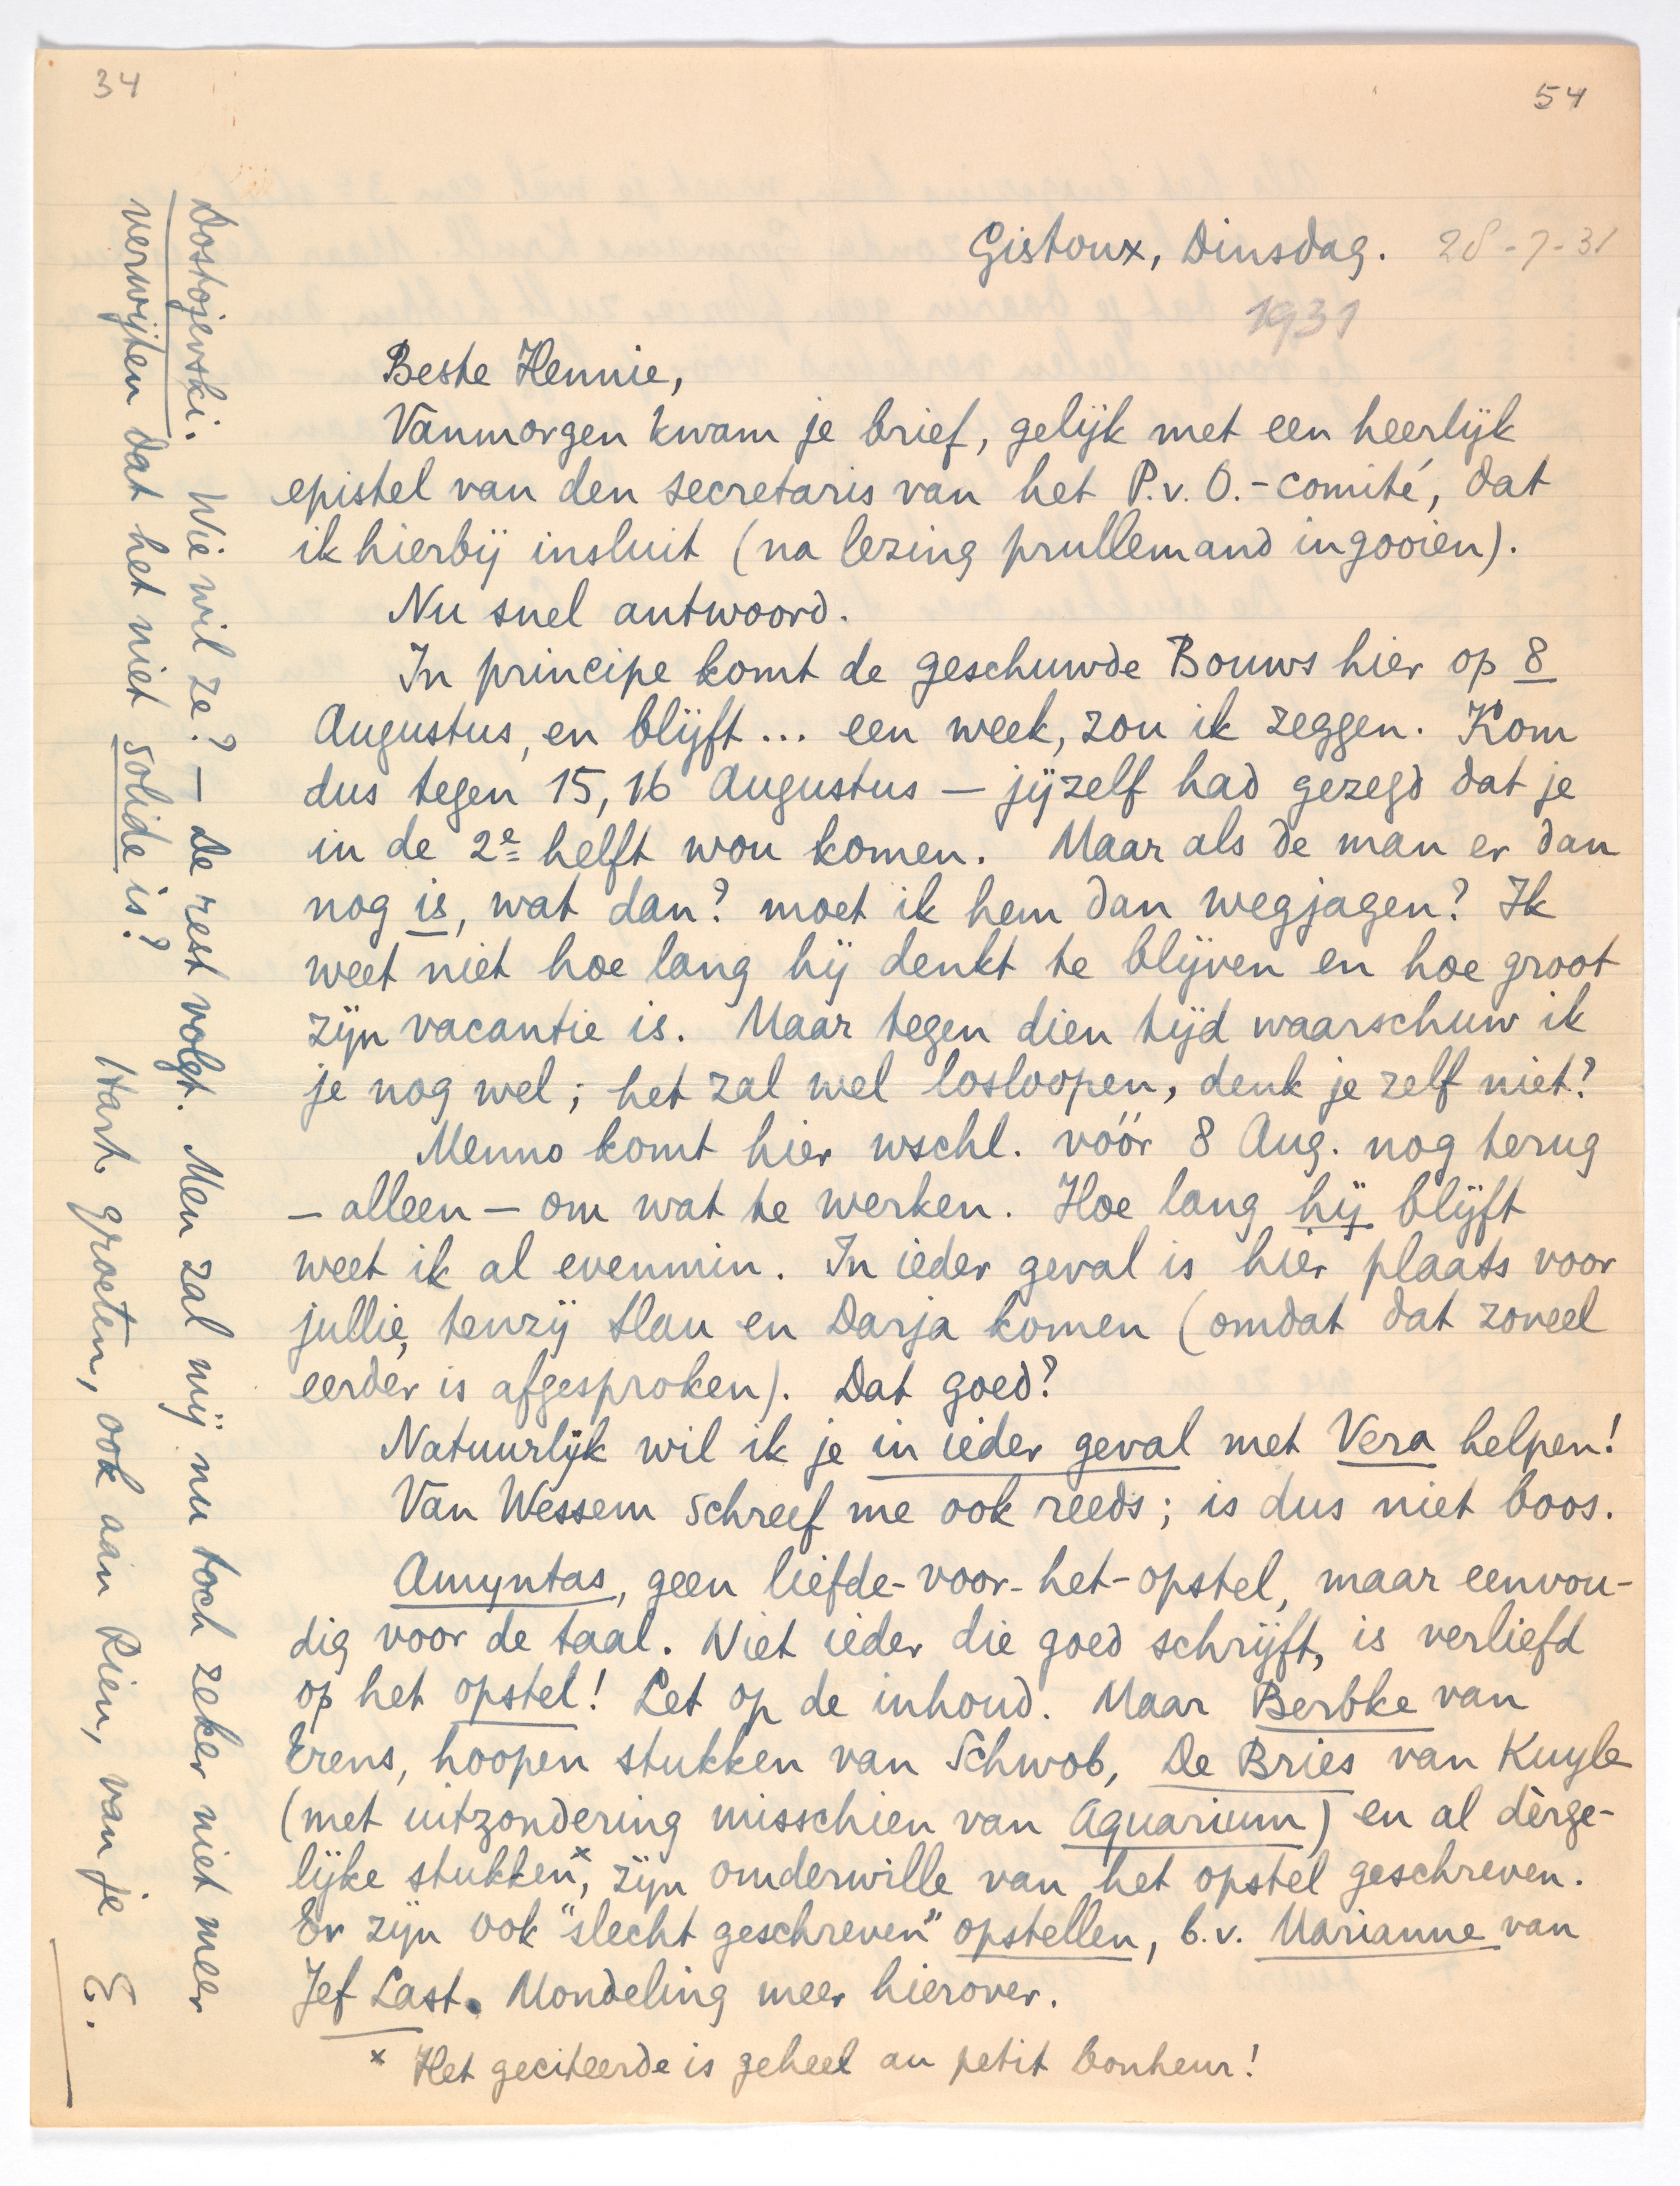 34
54
Gistoux, Dinsdag. 28-7-31
1931
Beste Hennie,
Vanmorgen kwam je brief, gelijk met een heerlijk
epistel van den secretaris van het P.v.O.-comité, dat
ik hierbij insluit (na lezing prullemand ingooien).
Nu snel antwoord.
In principe komt de geschuwde Bouws hier op 8
Augustus, en blijft... een week, zou ik zeggen. Kom
dus tegen 15, 16 Augustus — jijzelf had gezegd dat je
in de 2e helft wou komen. Maar als de man er dan
nog is, wat dan? moet ik hem dan wegjagen? Ik
weet niet hoe lang hij denkt te blijven en hoe groot
zijn vacantie is. Maar tegen dien tijd waarschuw ik
je nog wel; het zal wel losloopen, denk je zelf niet?
Menno komt hier wschl. vóór 8 Aug. nog terug
— alleen — om wat te werken. Hoe lang hij blijft
weet ik al evenmin. In ieder geval is hier plaats voor
jullie, tenzij Slau en Darja komen (omdat dat zoveel
eerder is afgesproken). Dat goed?
Natuurlijk wil ik je in ieder geval met Vera helpen!
Van Wessem schreef me ook reeds; is dus niet boos.
Amyntas, geen liefde-voor-het-opstel, maar eenvou-
dig voor de taal. Niet ieder die goed schrijft, is verliefd
op het opstel! Let op de inhoud. Maar Berbke van
Erens, hoopen stukken van Schwob, De Bries van Kuyle
(met uitzondering misschien van Aquarium) en al dèrge-
lijke stukken x, zijn omderwille van het opstel geschreven.
Er zijn ook "slecht geschreven" opstellen, b.v. Marianne van
Jef Last. Mondeling meer hierover.
x Het geciteerde is geheel au petit bonheur!
Dostojevski. Wie wil ze? — De rest volgt. Men zal mij nu toch zeker niet meer
verwijten dat het niet solide is?
Hart. groeten, ook aan Rien, van je
E.